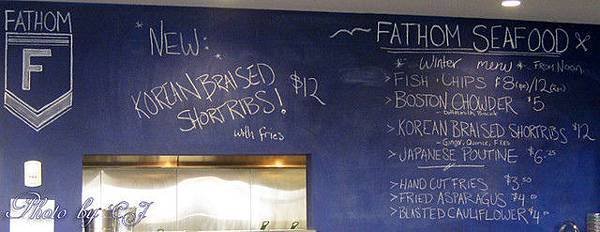 FATHOM
F
NEW:
KOREAN BRAISED
SHORTRIBS! $12
with fries
FATHOM SEAFOOD
Winter menu From Noon
>FISH + CHIPS $8 /12
>BOSTON CHOWDER $5
>KOREAN BRAISED SHORTRIBS $12
- Ginger, Quince, Fries
>JAPANESE POUTINE $6.25
>HAND CUT FRIES $3.50
>FRIED ASPARAGUS $4.00
>BLASTED CAULIFLOWER $4.00
Photo by CJ